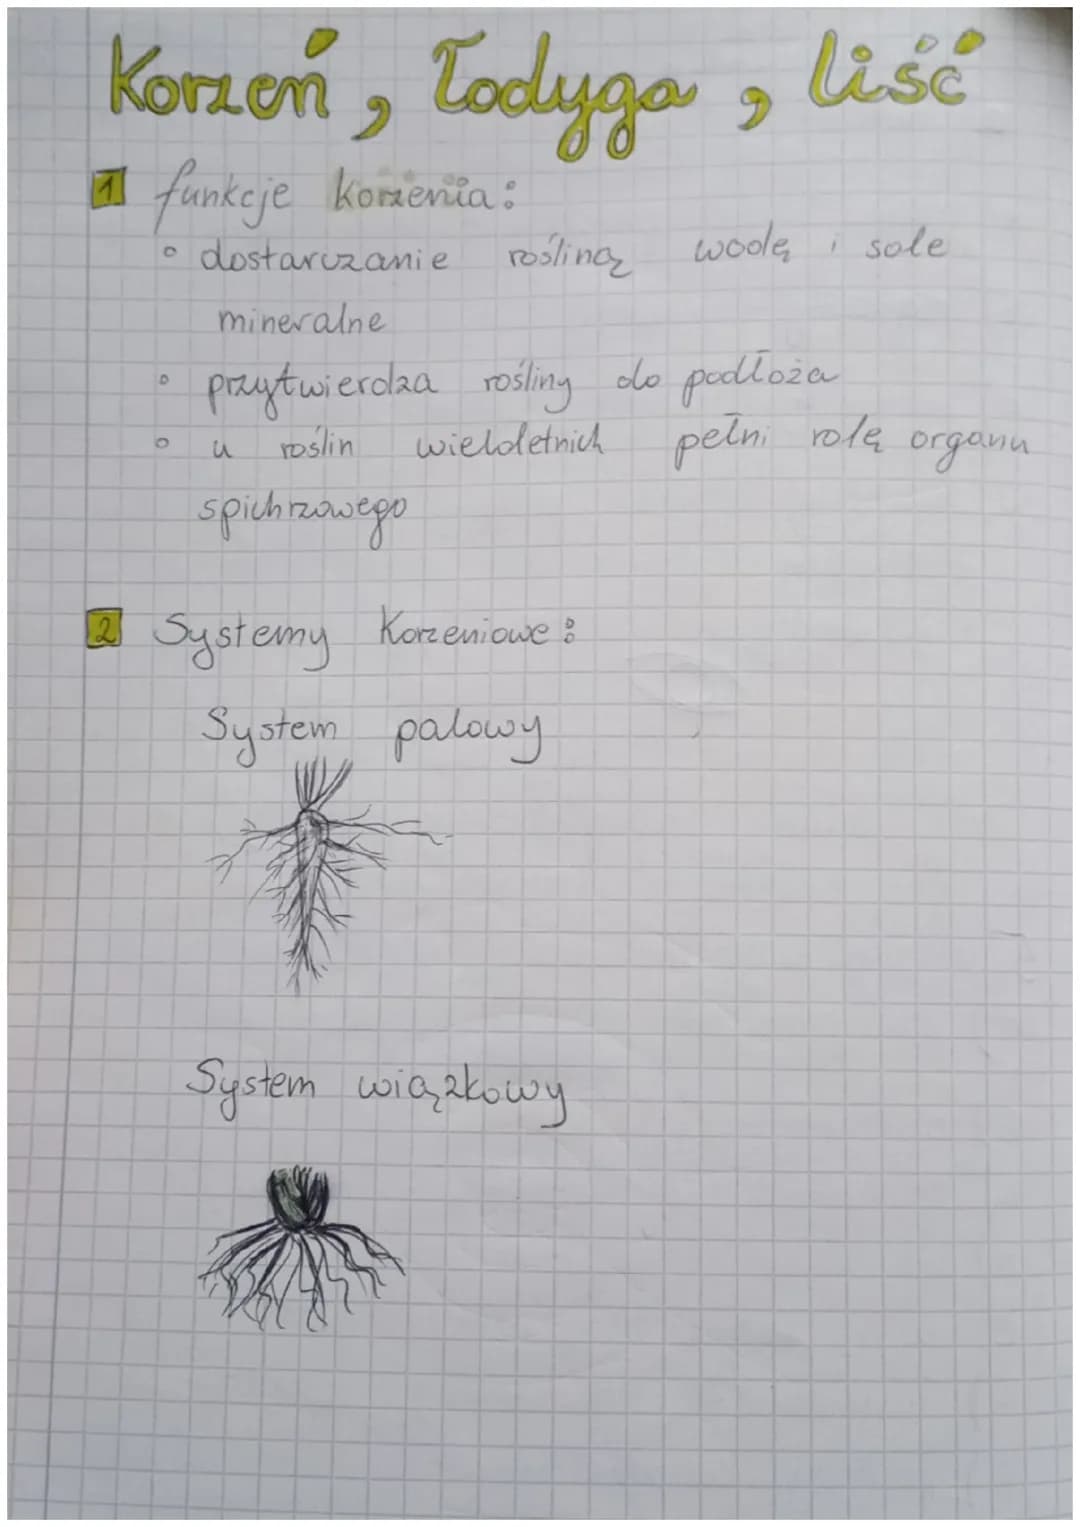 Korzeń, Łodyga, liść
1 funkcje korzenia:
◦ dostarczanie rośliną wodę i sole
mineralne
◦ przytwierdza rośliny do podłoża
◦ u roślin wieloletnich pełni rolę organu
spichrzowego
2 Systemy Korzeniowe:
System palowy
System wiązkowy